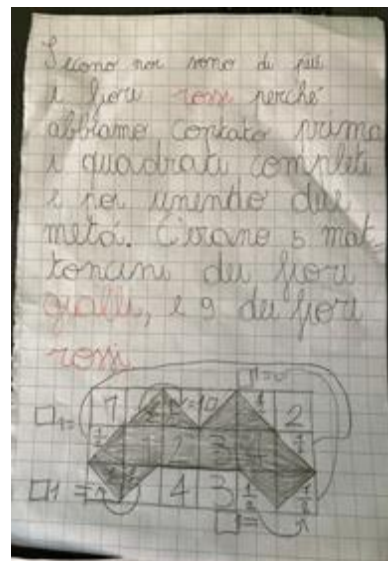 Secondo noi sono di più
i fiori rossi perché
abbiamo contato prima
i quadrati completi
e poi unendo due
metà. C'erano 5 mat
toncini dei fiori
gialli, e 9 dei fiori
rossi
1 2
1 2 3 4
4 3